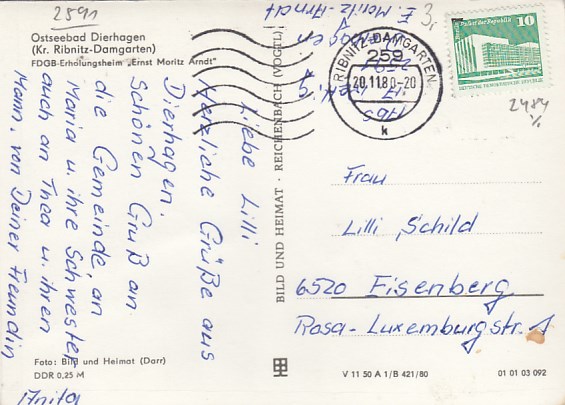 2591
Ostseebad Dierhagen
(Kr. Ribnitz-Damgarten)
FDGB-Erholungsheim „Ernst Moritz Arndt"
Liebe Lilli
Herzliche Grüße aus
Dierhagen.
Schönen Gruß an
die Gemeinde, an
Maria u. ihre Schwester
auch an Thea u. ihren
Mann, von Deiner Freundin
Anita
Foto: Bild und Heimat (Darr)
DDR 0,25 M
BILD UND HEIMAT · REICHENBACH (VOGTL)
E. Moritz-Arndt
3,
RIBNITZ-DAMGARTEN
259
20.11.80-20
k
10
2484
Frau
Lilli Schild
6520 Eisenberg
Rosa-Luxemburgstr. 1
V 11 50 A 1/B 421/80
01 01 03 092